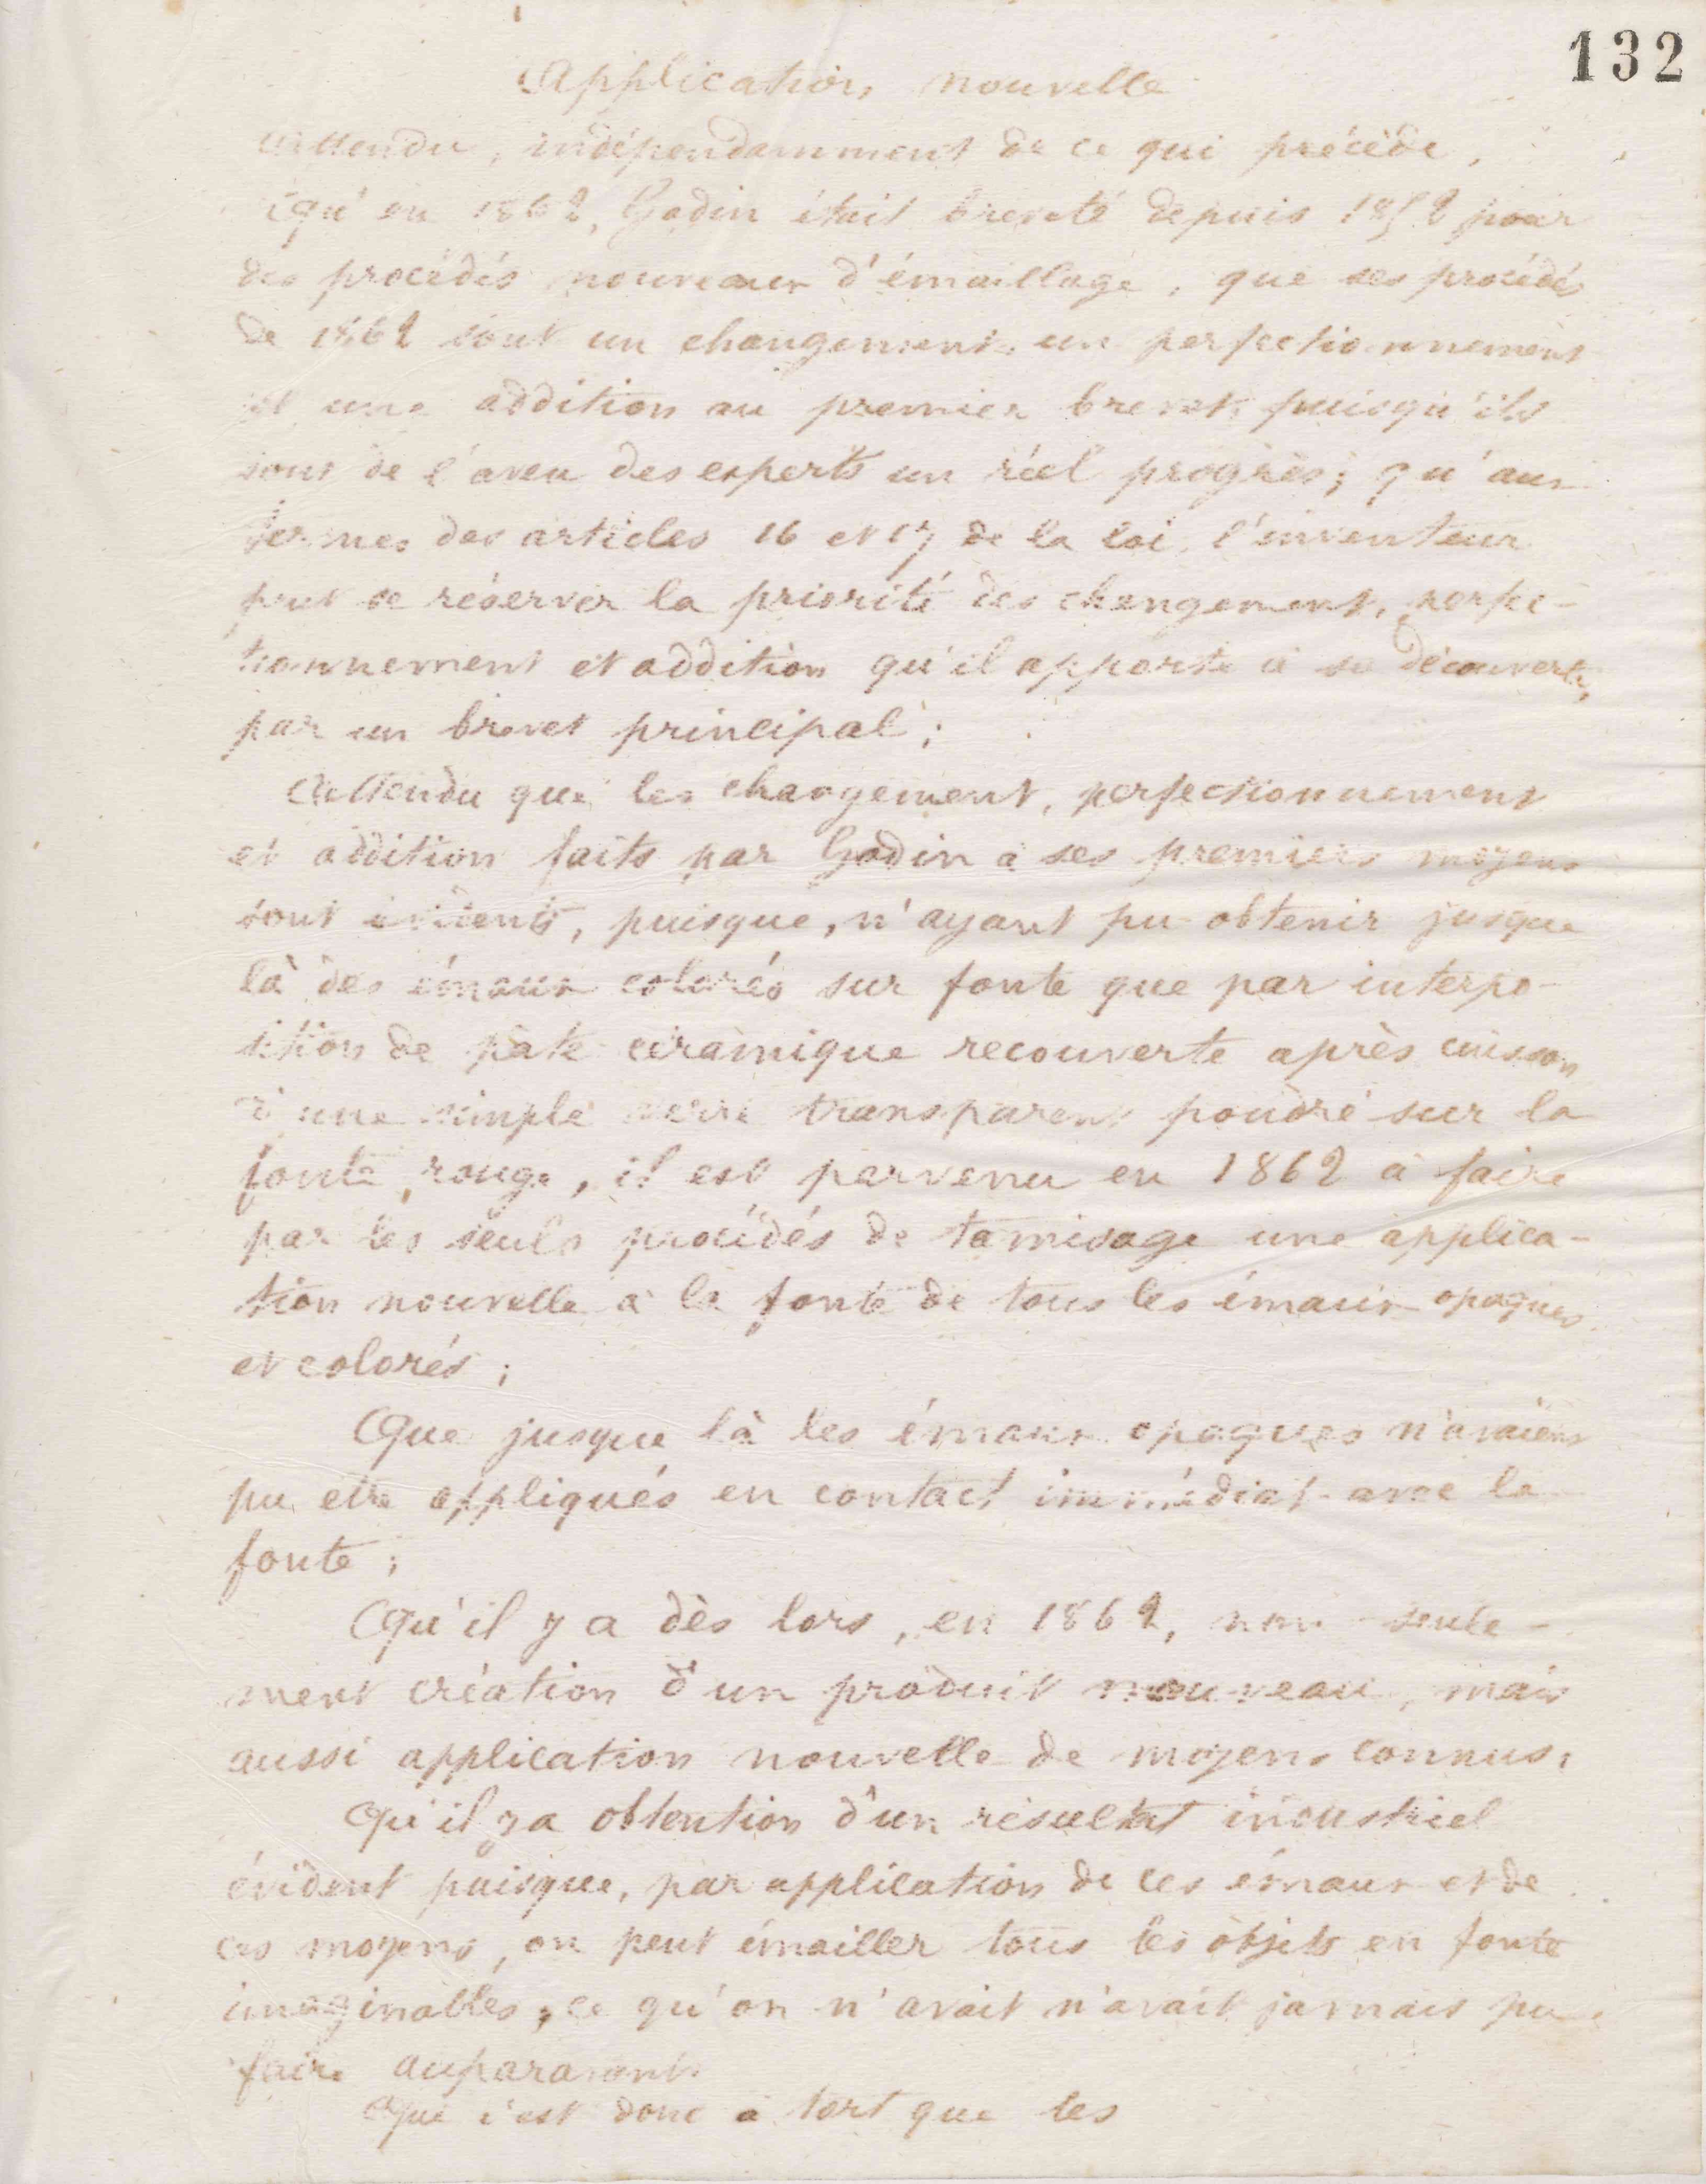 132
Application nouvelle
Attendu, indépendamment de ce qui précède,
qu'en 1862, Godin était breveté depuis 1852 pour
des procédés nouveaux d'émaillage, que ses procédés
de 1862 sont un changement, un perfectionnement
et une addition au premier brevet puisqu'ils
sont de l'aveu des experts un réel progrès; qu'aux
termes des articles 16 et 17 de la loi, l'inventeur
peut se réserver la priorité des changement, perfec-
tionnement et addition qu'il apporte à sa découverte,
par un brevet principal;
Attendu que les changement, perfectionnement
et addition faits par Godin à ses premiers moyens
sont évidents, puisque, n'ayant pu obtenir jusque
là des émaux colorés sur fonte que par interpo-
sition de pâte céramique recouverte après cuisson
d'une simple verre transparent poudré sur la
fonte rouge, il est parvenu en 1862 à faire
par les seuls procédés de tamisage une applica-
tion nouvelle à la fonte de tous les émaux opaques
et colorés;
Que jusque là les émaux opaques n'avaient
pu etre appliqués en contact immédiat avec la
fonte;
Qu'il y a dès lors, en 1862, non seule-
ment création d'un produit nouveau, mais
aussi application nouvelle de moyens connus,
Qu'il y a obtention d'un résultat industriel
évident puisque, par application de ces émaux et de
ces moyens, on peut émailler tous les objets en fonte
imaginables, ce qu'on n'avait n'avait jamais pu
faire auparavant.
Que c'est donc à tort que les